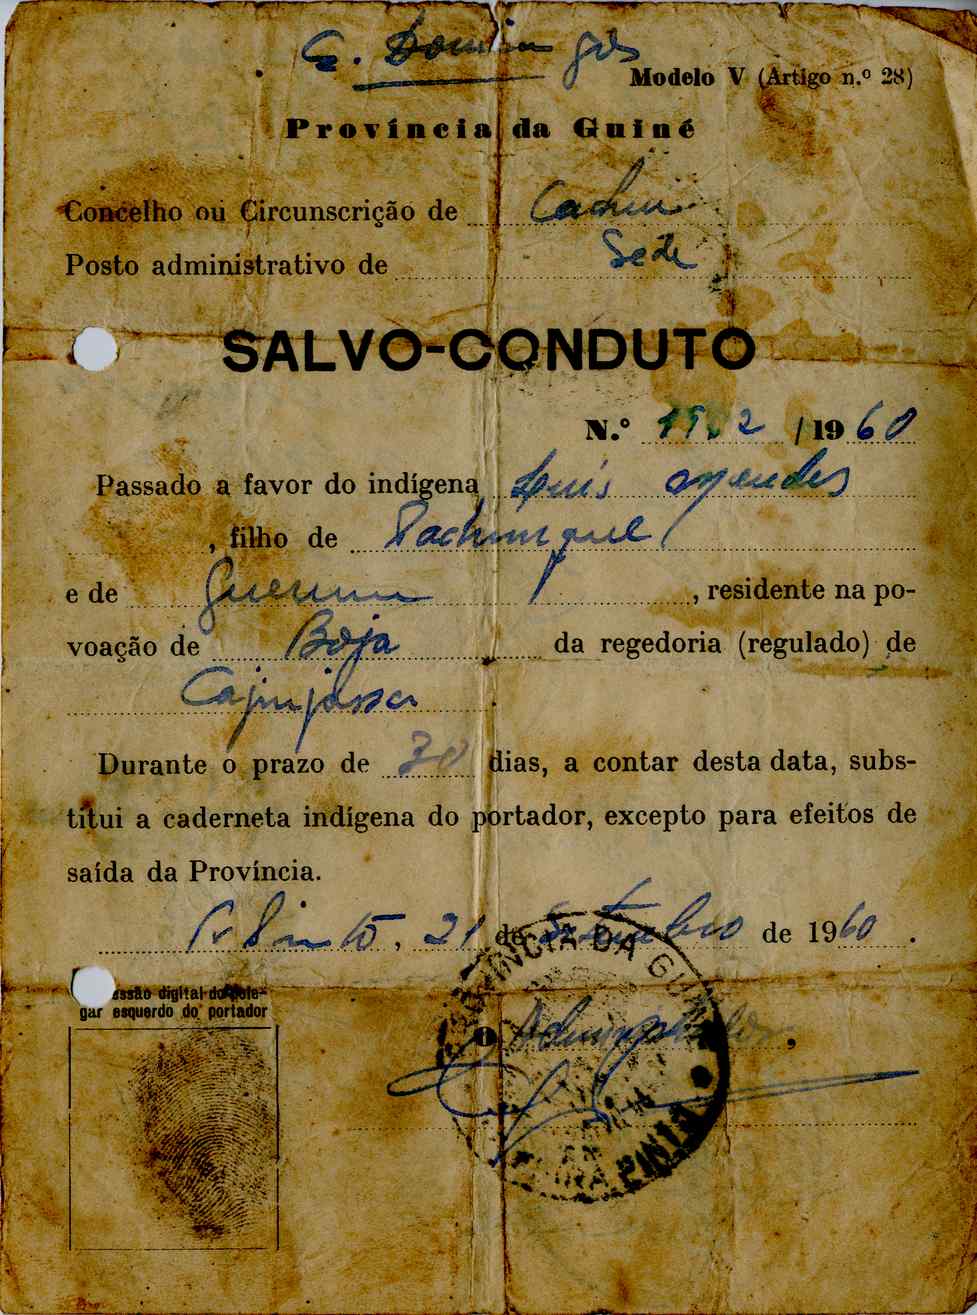 G. Domingos
Modelo V (Artigo n.º 28)
Província da Guiné
Concelho ou Circunscrição de Cacheu
Posto administrativo de Sede
SALVO-CONDUTO
N.º /1960
Passado a favor do indígena Luís Mendes
, filho de
e de , residente na po-
voação de Boja da regedoria (regulado) de
Durante o prazo de 30 dias, a contar desta data, subs-
titui a caderneta indígena do portador, excepto para efeitos de
saída da Província.
21 de Setembro de 1960.
essão digital do pole-
gar esquerdo do portador
O Administrador,
PROVÍNCIA DA GUINÉ
PINTO